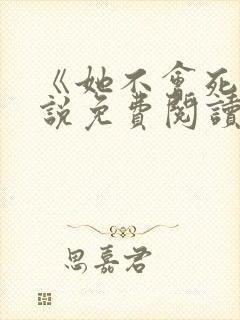 《她不會死
說免費閱讀
思嘉君